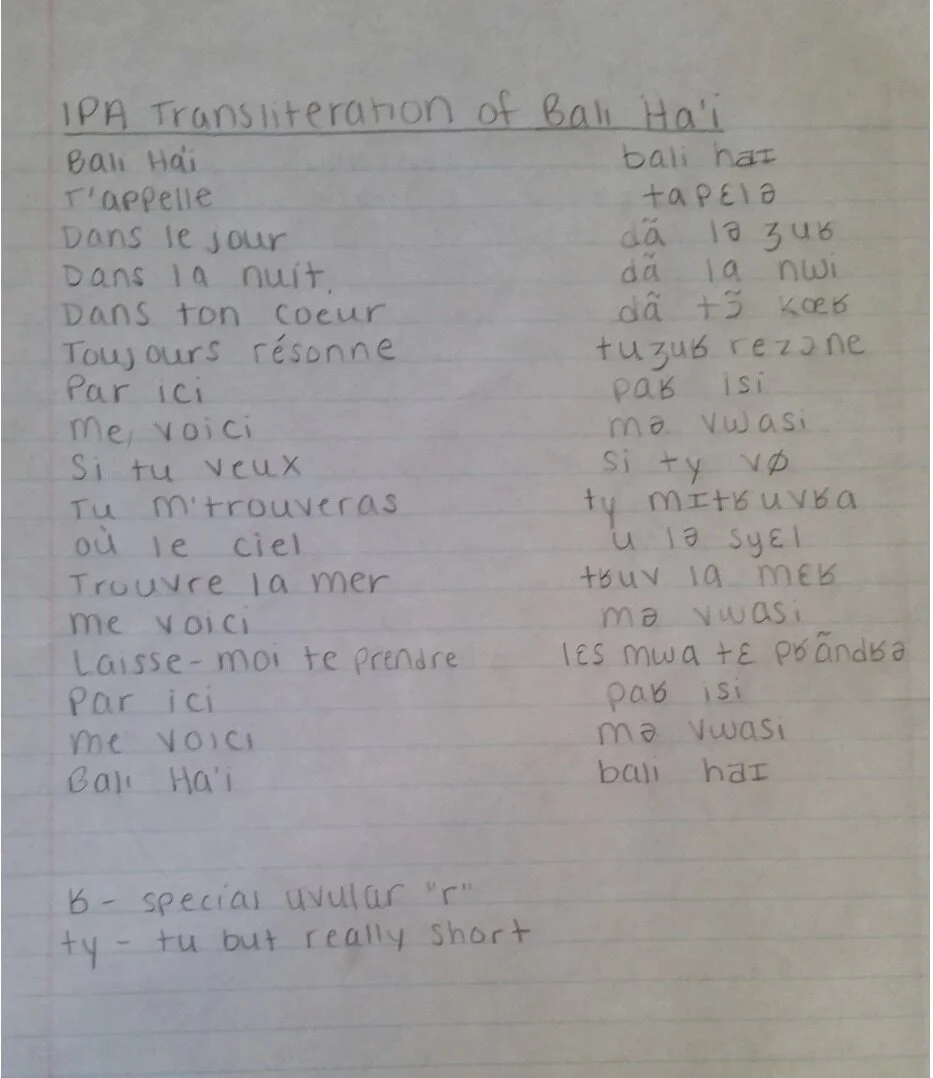 IPA Transliteration of Bali Ha'i
Bali Ha'i bali haɪ
T'appelle tapɛlə
Dans le jour dã lə ʒuʁ
Dans la nuit. dã la nwi
Dans ton coeur dã tɔ̃ kœʁ
Toujours résonne tuʒuʁ rezɔne
Par ici paʁ isi
Me, voici mə vwasi
Si tu veux si ty vø
Tu m'trouveras ty mɪtʁuvʁa
où le ciel u lə syɛl
Trouvre la mer tʁuv la mɛʁ
me voici mə vwasi
Laisse-moi te prendre lɛs mwa tɛ pʁãndʁə
Par ici paʁ isi
me voici mə vwasi
Bali Ha'i bali haɪ
ʁ - special uvular "r"
ty - tu but really short